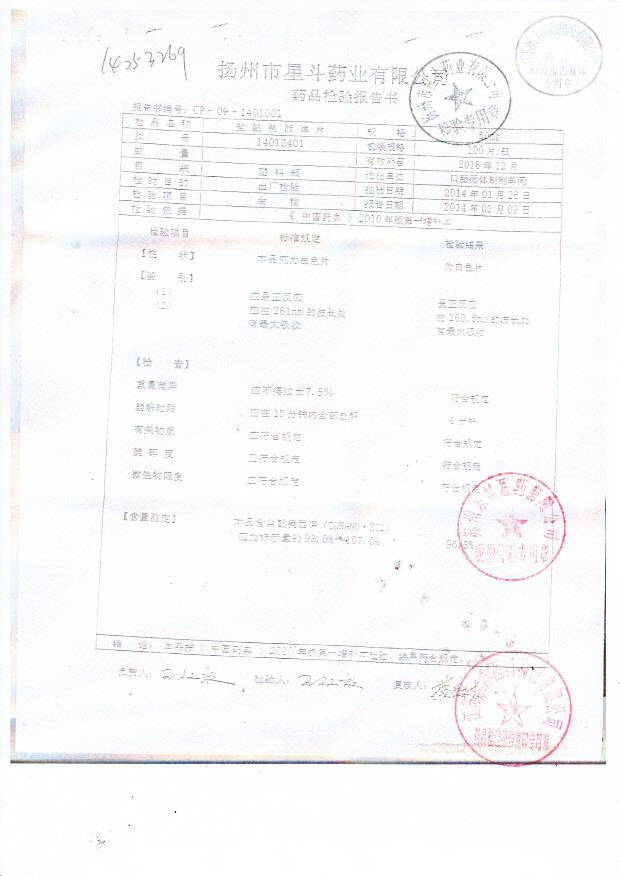 14253269
扬州市星斗药业有限公司
药品检验报告书
报告书编号：CP-09-1401001
检品名称 盐酸美西律片 规格 50mg
批号 14012401 包装规格 100片/瓶
数量 有效期至 2015年12月
包装 塑料瓶 送检单位 口服固体制剂车间
检验目的 出厂检验 抽检日期 2014年01月26日
检验项目 全检 报告日期 2014年02月09日
检验依据 《中国药典》2010年版第一增补本
检验项目 标准规定 检验结果
【性状】 本品应为白色片 为白色片
【鉴别】
(1) 应呈正反应 呈正反应
(2) 应在261nm的波长处 在260.5nm的波长处
有最大吸收 有最大吸收
【检查】
重量差异 应不得过±7.5% 符合规定
崩解时限 应在15分钟内全部崩解 分钟
有关物质 应符合规定 符合规定
脆碎度 应符合规定 符合规定
微生物限度 应符合规定 符合规定
【含量测定】 本品含盐酸美西律（C₁₁H₁₇NO·HCl）
应为标示量的93.0%~107.0% 96.3%
结论：本品按《中国药典》2010年版第一增补本检验，结果符合规定。
负责人： 检验人： 复核人：
检验专用章
检验报告复印
专用章
质量管理专用章
药品检验报告复印专用章